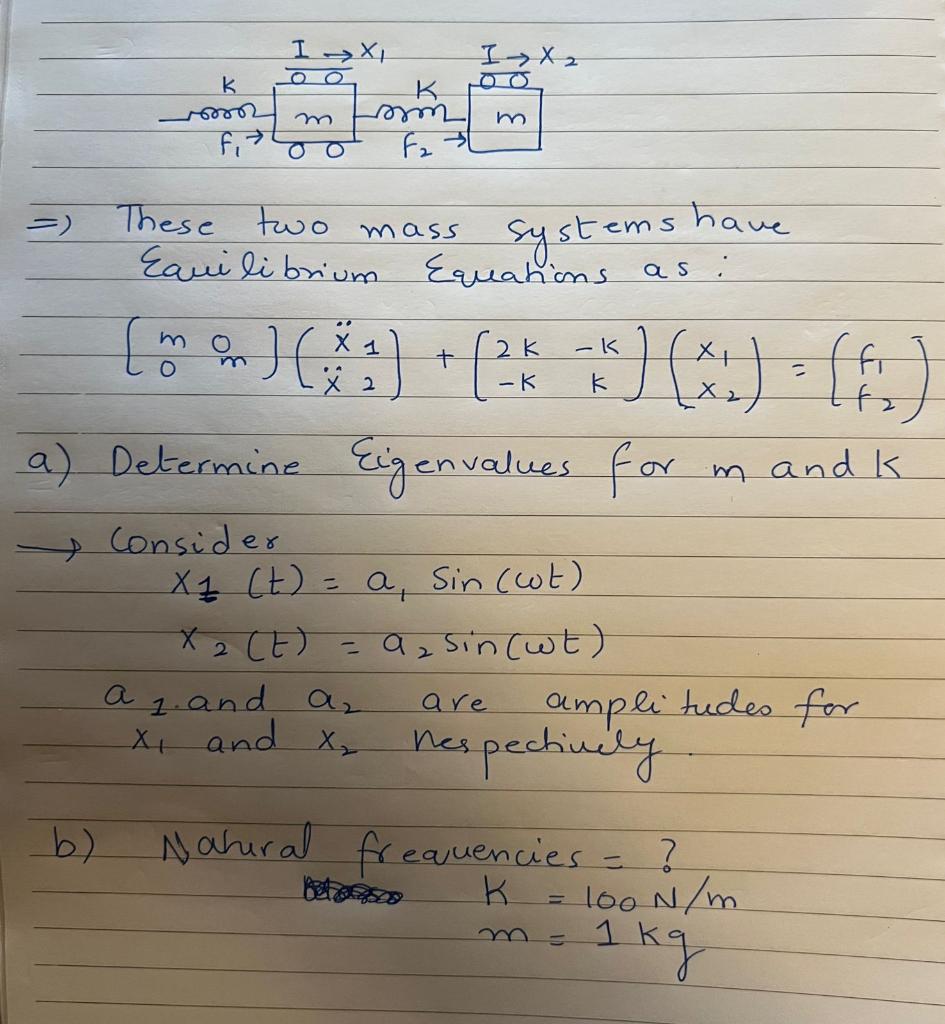 I → X₁ I → X₂
K K
m m
f₁ → f₂ →
=) These two mass systems have
Equilibrium Equations as :
[m 0 0 m] (ẍ 1 ẍ 2) + [2K -K -K K] (X₁ X₂) = (f₁ f₂)
a) Determine Eigenvalues for m and K
→ Consider
X1 (t) = a₁ Sin (ωt)
X₂ (t) = a₂ sin (ωt)
a 1 and a₂ are amplitudes for
X₁ and X₂ respectively.
b) Natural frequencies = ?
K = 100 N/m
m = 1 kg